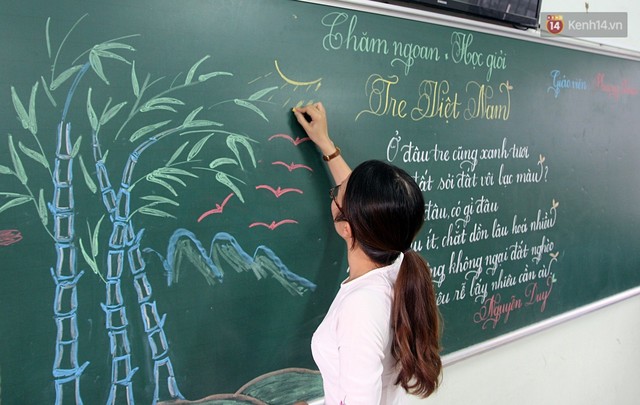 14
Kenh14.vn
Chăm ngoan - Học giỏi
Giáo viên
Tre Việt Nam
Ở đâu tre cũng xanh tươi
đất sỏi đất vôi bạc màu?
đâu, có gì đâu
ít, chắt dồn lâu hoá nhiều
không ngại đất nghèo
rễ lấy nhiêu cần cù
Nguyễn Duy